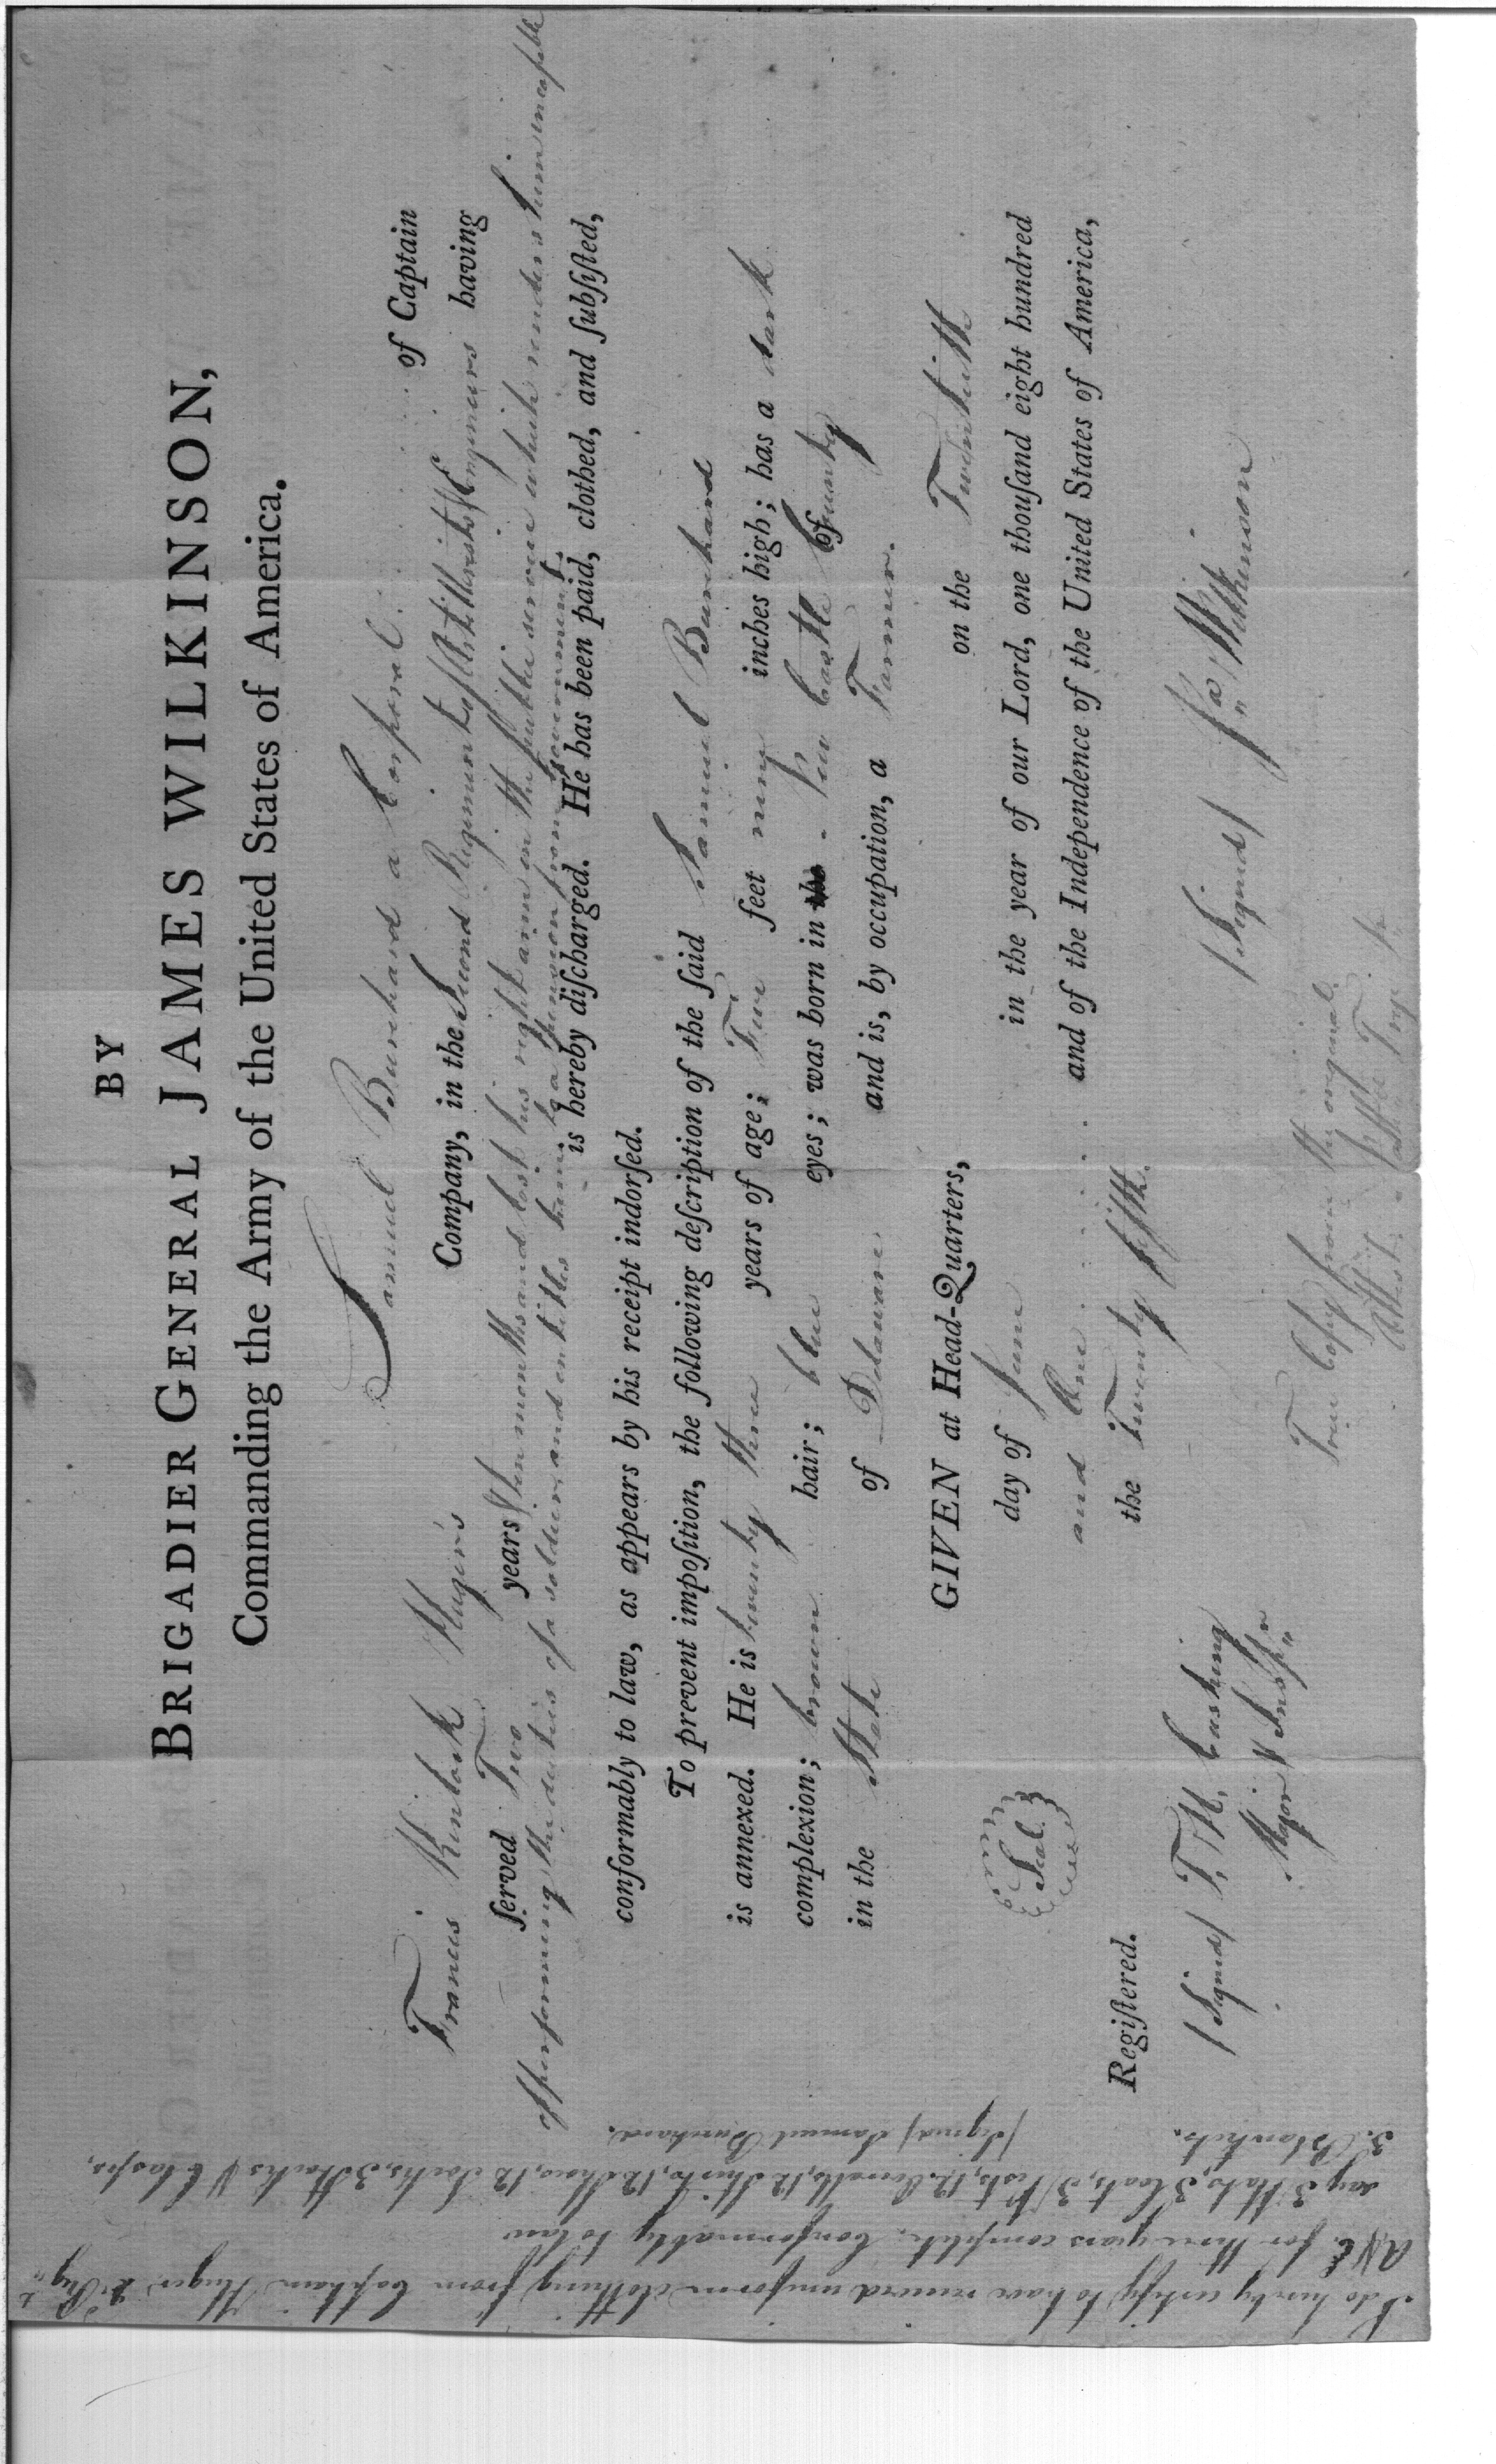 BY
BRIGADIER GENERAL JAMES WILKINSON,
Commanding the Army of the United States of America.
Samuel Burchard a Corporal of Captain
Francis Kinlock Huger's Company, in the Second Regiment of Artillerists & Engineers having
ſerved Two years & ten months and lost his right arm in the public service which renders him incapable
of performing the duties of a soldier, and entitles him to a pension from government,
is hereby diſcharged. He has been paid, clothed, and ſubſiſted,
conformably to law, as appears by his receipt indorſed.
To prevent impoſition, the following deſcription of the ſaid Samuel Burchard
is annexed. He is twenty three years of age; Five feet nine inches high; has a dark
complexion; brown hair; blue eyes; was born in the New Castle County
in the State of Delaware and is, by occupation, a Farmer.
GIVEN at Head-Quarters, on the Twentieth
day of June in the year of our Lord, one thouſand eight hundred
and One and of the Independence of the United States of America,
the twenty fifth.
Seal
Regiſtered.
(Signed) T. H. Cushing
Major & Insp.r
(Signed) Ja Wilkinson
True Copy from the original.
Attest.
I do hereby certify to have received uniform clothing from Captain Huger 2d Regt
A & E for three years complete, Conformably to law
say 3 Hats, 3 Coats, 3 Vests, 12 Overalls, 12 Shirts, 12 Shoes, 12 Socks, 3 Stocks & Clasps,
3 Blankets.
(Signed) Samuel Burchard.